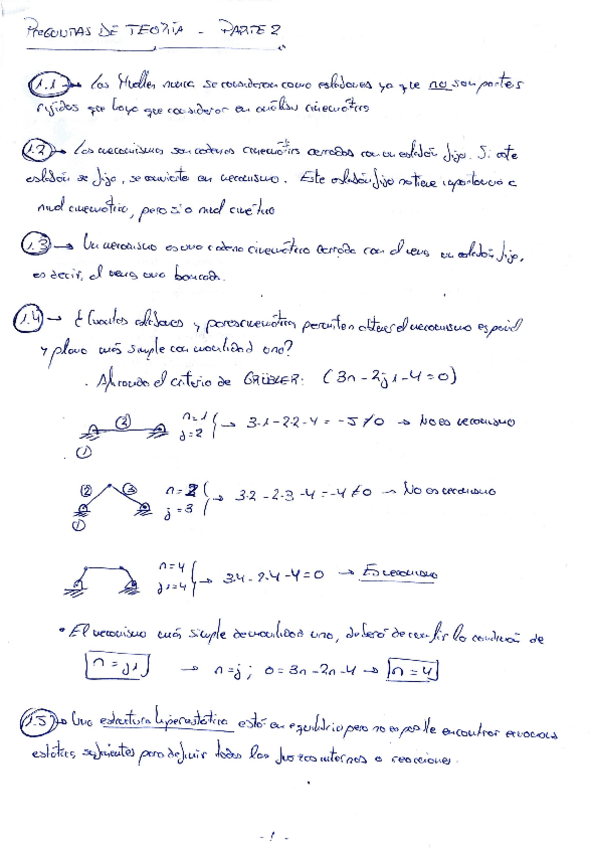 PREGUNTAS DE TEORÍA - PARTE 2
1.1 → Los Muelles nunca se consideran como eslabones ya que no son partes
rígidas que haya que considerar en análisis cinemático
1.2 → Los mecanismos son cadenas cinemátics cerradas con un eslabón fijo. Si este
eslabón se fija, se convierte en mecanismo. Este eslabón fijo no tiene importancia a
nivel cinemático, pero sí a nivel cinético
1.3 → Un mecanismo es una cadena cinemática cerrada con al menos un eslabón fijo,
es decir, al menos una bancada.
1.4 → ¿Cuántos eslabones y pares cinemáticos permiten obtener el mecanismo espacial
y plano más simple con movilidad uno?
. Aplicando el criterio de GRÜBLER: (3n - 2j1 - 4 = 0)
2
n=1
j=2
→ 3·1 - 2·2 - 4 = -5 ≠ 0 → No es mecanismo
1
2 3
n=2
j=3
→ 3·2 - 2·3 - 4 = -4 ≠ 0 → No es mecanismo
1
n=4
j1=4
→ 3·4 - 2·4 - 4 = 0 → Es mecanismo
• El mecanismo más simple de movilidad uno, deberá de cumplir la condición de
n = j1 → n=j ; 0 = 3n - 2n - 4 → n = 4
1.5 → Una estructura hiperestática está en equilibrio pero no es posible encontrar ecuaciones
estáticas suficientes para definir todas las fuerzas internas o reacciones.
- 1 -